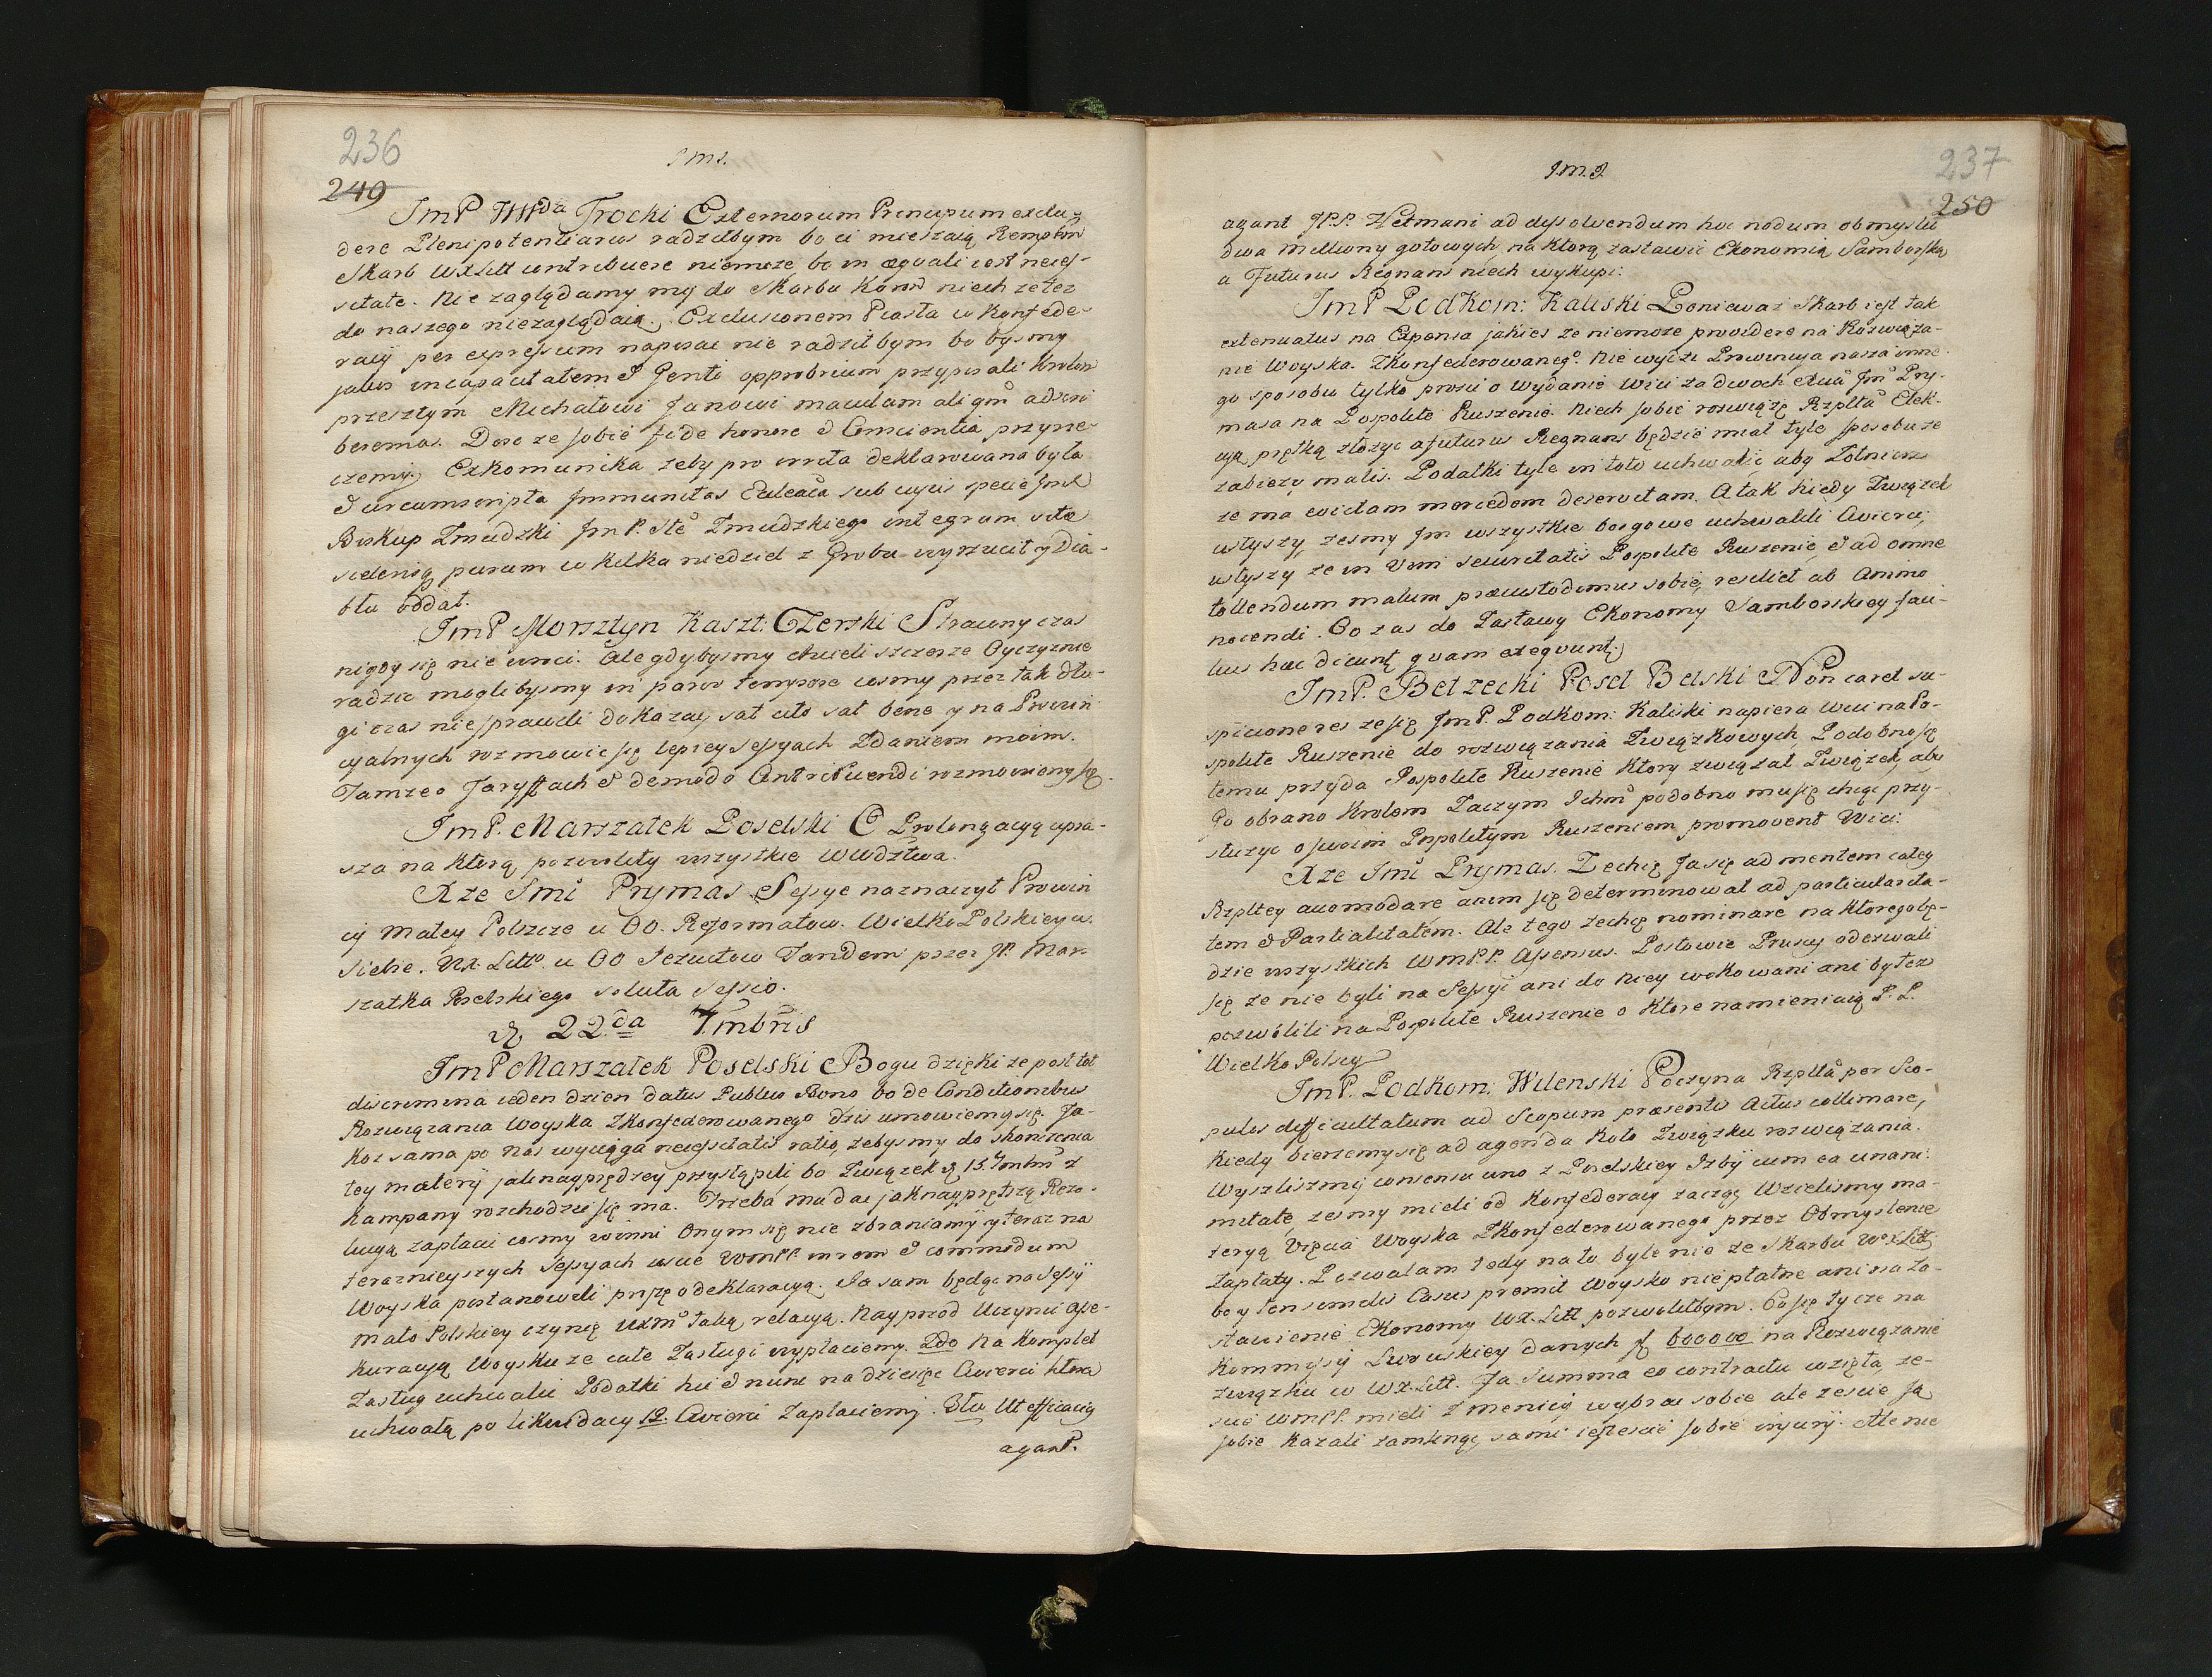 236
249
JmP WWda Trocki Externorum Principum exclu-
dere Plenipotentiarios radzilbym bo ci mieszaią Remp
Skarb WXLitt contribuere niemoze, bo in æquali iest neces-
sitate. Nie zaglądamy my do Skarbu Koron niech ze tez
do naszego niezaglądaią. Exclusionem Piasta w Konfede-
racÿ per expressum napisac nie radzilbym bo bysmy
jakos incapacitatem & Genti opprobrium przypisali Krolom
przeszłym Michałowi Janowi maculam
beremas. Dosc ze sobie fide honore & Conscientia przyrze-
czemy, Exkomunika zeby pro irrita deklarowana była
& circumscripta Immunitas sub cuius specie JmX
Biskup Zmudzki JmP. Zmudzkiego integrum vitæ
purum w kilka niedziel z Grobu wyrzucił y Dia-
błu oddał.
JmP Morsztyn Kaszt: Czerski Stracony czas
nigdy się nie wroci. Ale gdybysmy chcieli szczerze Oyczyznie
radzic moglibysmy in parvo tempore cosmy przez tak dłu-
gi czas nie sprawili dokazac, sat cito sat bene y na Prowin
cyalnych rozmowic się lepiey sessyach zdaniem moim.
Tamze o & de modo Contribuendi rozmowiemy się.
JmP. Marszałek Poselski O Prolongacyą upra-
sza na ktorą pozwoliły wszystkie Wwdztwa.
Xze Jmć Prymas Sessye naznaczył Prowin
cÿ Małey Polszcze u OO. Reformatow. WielkoPolskiey u
siebie. WX. Litto. u OO Jezuitow Tandem przez JP. Mar-
szałka Poselskiego soluta sessio.
22.da 7mbris
JmP Marszałek Poselski Bogu dzięki ze post tot
discrimina ieden dzien datus Publico Bono bo de Conditionibus
Rozwiązania Woyska Zkonfederowanego dzis umowiemy się. Ja-
koz sama po nas wyciąga necessitatis ratio, zebysmy do skonczenia
tey materÿ jaknayprędzey przystąpili bo Związek 15. 7mbris z
Kampany rozchodzic się ma. Trzeba mu dac jaknayprętszą Rezo-
lucyą zapłacic cosmy winni Onym się nie zbraniamÿ y teraz na
teraznieyszych Sessyach coscie WmPP. in rem & commodum
Woyska postanowili proszę o deklaracyą. Ja sam będąc na Sessÿ
Mało Polskiey czynię Wxm taką relacyą. Nayprzod Uczynic Asse-
kuracyą Woysku ze całe Zasługi wypłaciemy. 2do Na Komplet
Zasług uchwalic Podatki hic & nunc na dziesięc Cwierci ktora
uchwałą po likwidacy 12. Cwierci Zapłaciemy. 3tio Ut efficaciq
agant.
J.m.J.
237
250
agant JP.P. Hetmani ad dyssolvendum hoc nodum obmyslic
dwa milliony gotowych, na ktorą zastawic Ekonomią Samborską
a Futurus Regnans niech wykupi:
JmP Podkom: Kaliski Poniewaz Skarb iest tak
extenuatus na Expensa jakies ze niemoze providere na Rozwiąza-
nie Woyska Zkonfederowanego. Nie wyczi Prowincya nasza inne-
go sposobu tylko prosic o wydanie Wici za dwoch Jmci Pry-
masa na Pospolite Ruszenie. Niech sobie rozwiąze Rzplta Elek-
cyą prętką złozyc a futurus Regnans będzie miał tyle sposobu ze
zabiezy malis. Podatki tyle in toto uchwalic aby Zołnierz
ze ma evictam mercedem deservitam. A tak kiedy Związek
usłyszy, zesmy Jm wszystkie borgowe uchwalili Cwierci,
usłyszy ze in vim securitatis Pospolite Ruszenie, & ad omne
tollendum malum præcustodimus sobie, resiliet ab Animo
nocendi. Co zas do Zastawy Ekonomy Samborskiey fau-
lius hæc dicunt, quam exequunt.
JmP. Bełzecki Poseł Bełski Non caret su-
spicione res ze się JmP. Podkom: Kaliski napiera Wici na Po-
spolite Ruszenie do rozwiązania Związkowych, Podobno się
temu przyda Pospolite Ruszenie ktory związał Związek, aby
go obrano Krolem Zaczym Ichm podobno mu się chcąc przy-
służyc o swoim Pospolitym Ruszeniem promovent Wici.
Xze Jmć Prymas. Zechcę Ja się ad mentem całey
Rzpltey accomodare anim się determinował ad particularita-
tem & Partialitatem. Ale tego zechcę nominare na ktorego bę-
dzie wszystkich WmP.P. Assensus. Posłowie Pruscy odezwali
się ze nie byli na Sessyi ani do niey wokowani ani by tez
pozwolili na Pospolite Ruszenie o ktore namieniaią P. P.
Wielko Polscy
JmP. Podkom: Wilenski Poczyna Rzplta per Sco-
pulos difficultatum ad Scopum præsentis Actus collimare,
Kiedy bierzemy się ad agenda koło Związku rozwiązania.
Wyszlismy consensu uno z Poselskiey Izbÿ cum ea unani-
mitate, zesmy mieli od Konfederacy zacząc Wzielismy ma-
teryą Ujęcia Woyska Zkonfederowanego przez Obmyslenie
Zapłaty. Pozwalam tedy na to byle nie ze Skarbu WXLitt
bo y Casus premit Woysko niepłatne ani na Za-
stawienie Ekonomy WX.Litt pozwoliłbym. Co się tycze na
Kommyssÿ Lwowskiey danych f 600000 na Rozwiązanie
związku w WX.Litt. Ta Summa ex contractu wzięta, ze-
scie WmPP. mieli Zmienicą wybrac sobie ale zescie Ją
sobie kazali sami iestescie sobie injurÿ. Ale nie